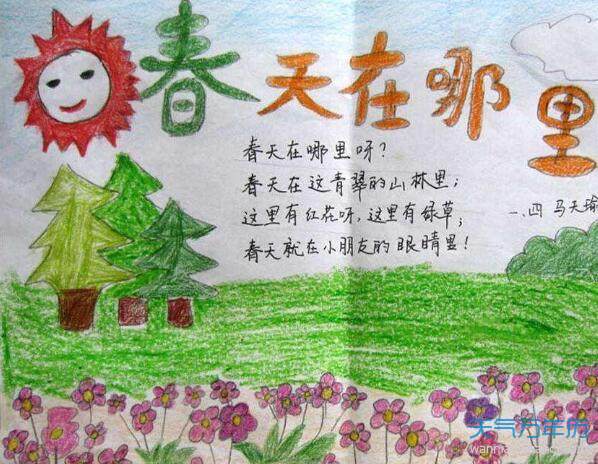 春天在哪里
春天在哪里呀？
春天在这青翠的山林里；
这里有红花呀，这里有绿草；
春天就在小朋友的眼睛里！
一.四 马天瑜
天气万年历